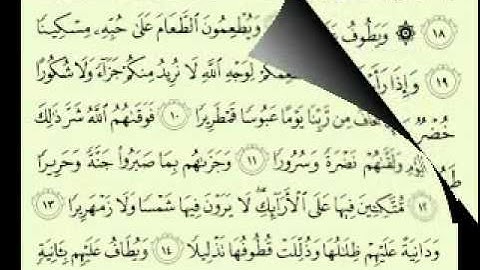 ١٨ ۞ وَيَطُوفُ وَيُطْعِمُونَ ٱلطَّعَامَ عَلَىٰ حُبِّهِۦ مِسْكِينًا
١٩ وَإِذَا لِوَجْهِ ٱللَّهِ لَا نُرِيدُ مِنكُمْ جَزَآءً وَلَا شُكُورًا
خُضْرٌ مِن رَّبِّنَا يَوْمًا عَبُوسًا قَمْطَرِيرًا ١٠ فَوَقَىٰهُمُ ٱللَّهُ شَرَّ ذَٰلِكَ
وَلَقَّىٰهُمْ نَضْرَةً وَسُرُورًا ١١ وَجَزَىٰهُم بِمَا صَبَرُوا۟ جَنَّةً وَحَرِيرًا
١٢ مُّتَّكِـِٔينَ فِيهَا عَلَى ٱلْأَرَآئِكِ ۖ لَا يَرَوْنَ فِيهَا شَمْسًا وَلَا زَمْهَرِيرًا ١٣
وَدَانِيَةً عَلَيْهِمْ ظِلَٰلُهَا وَذُلِّلَتْ قُطُوفُهَا تَذْلِيلًا ١٤ وَيُطَافُ عَلَيْهِم بِـَٔانِيَةٍ